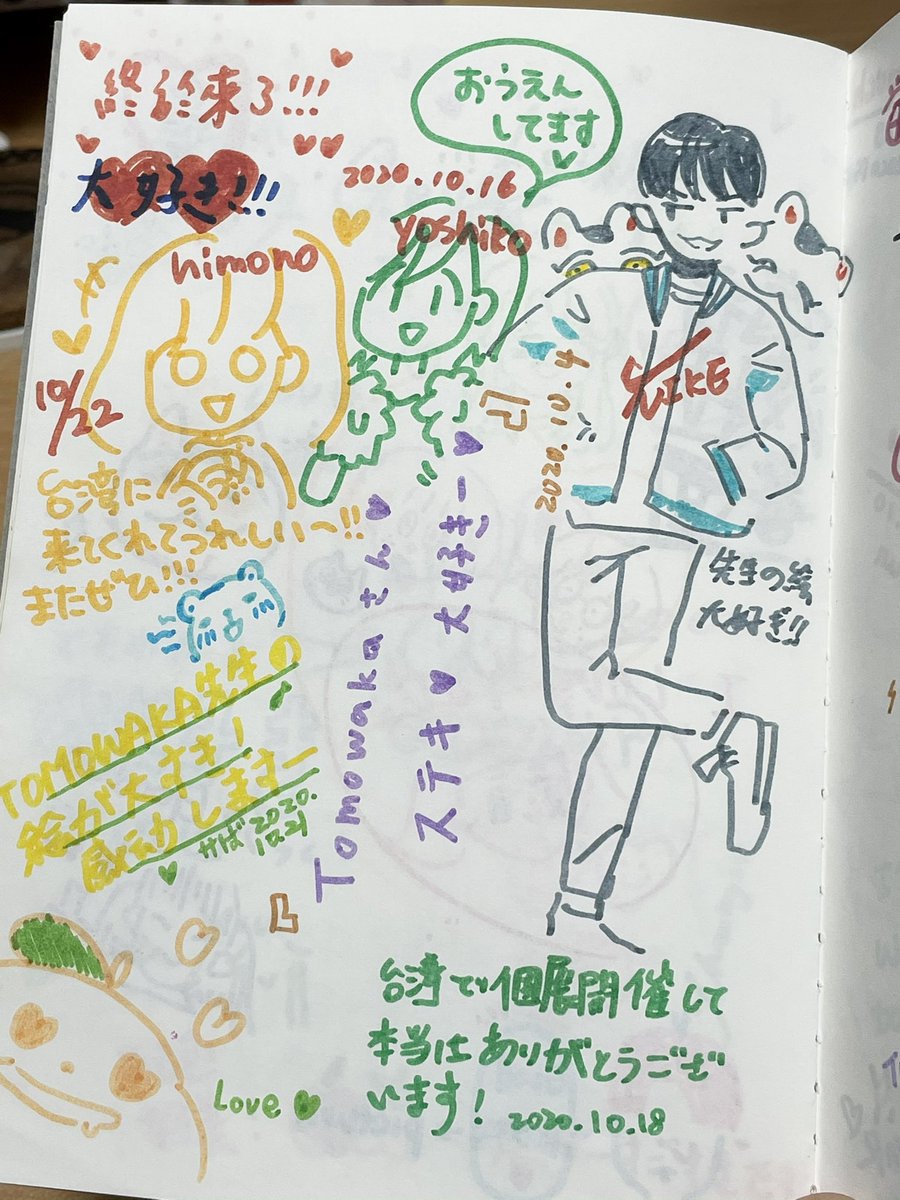 終於來了!!!
大好き!!!
おうえん
してます
2020.10.16
yoshiko
himono
10/22
台湾に
来てくれてうれしい〜!!
またぜひ!!!
TOMOWAKA先生の
絵が大すき!
感動しますー
かば 2020.
10.21
Tomowakaさん
ステキ♥大好きー♥
2020.10.4
NIKE
先生の絵
大好き!!
Love
台湾で個展開催して
本当はありがとうござ
います!
2020.10.18